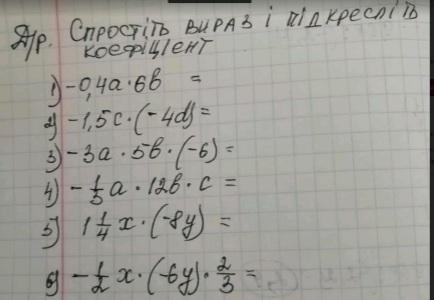 Д/р. Спростіть вираз і підкресліть
коефіцієнт
1) -0,4a·6b =
2) -1,5c·(-4d)=
3) -3a·5b·(-6)=
4) -1/3 a·12b·c =
5) 1 1/4 x·(-8y) =
6) -1/2 x·(-6y)·2/3 =